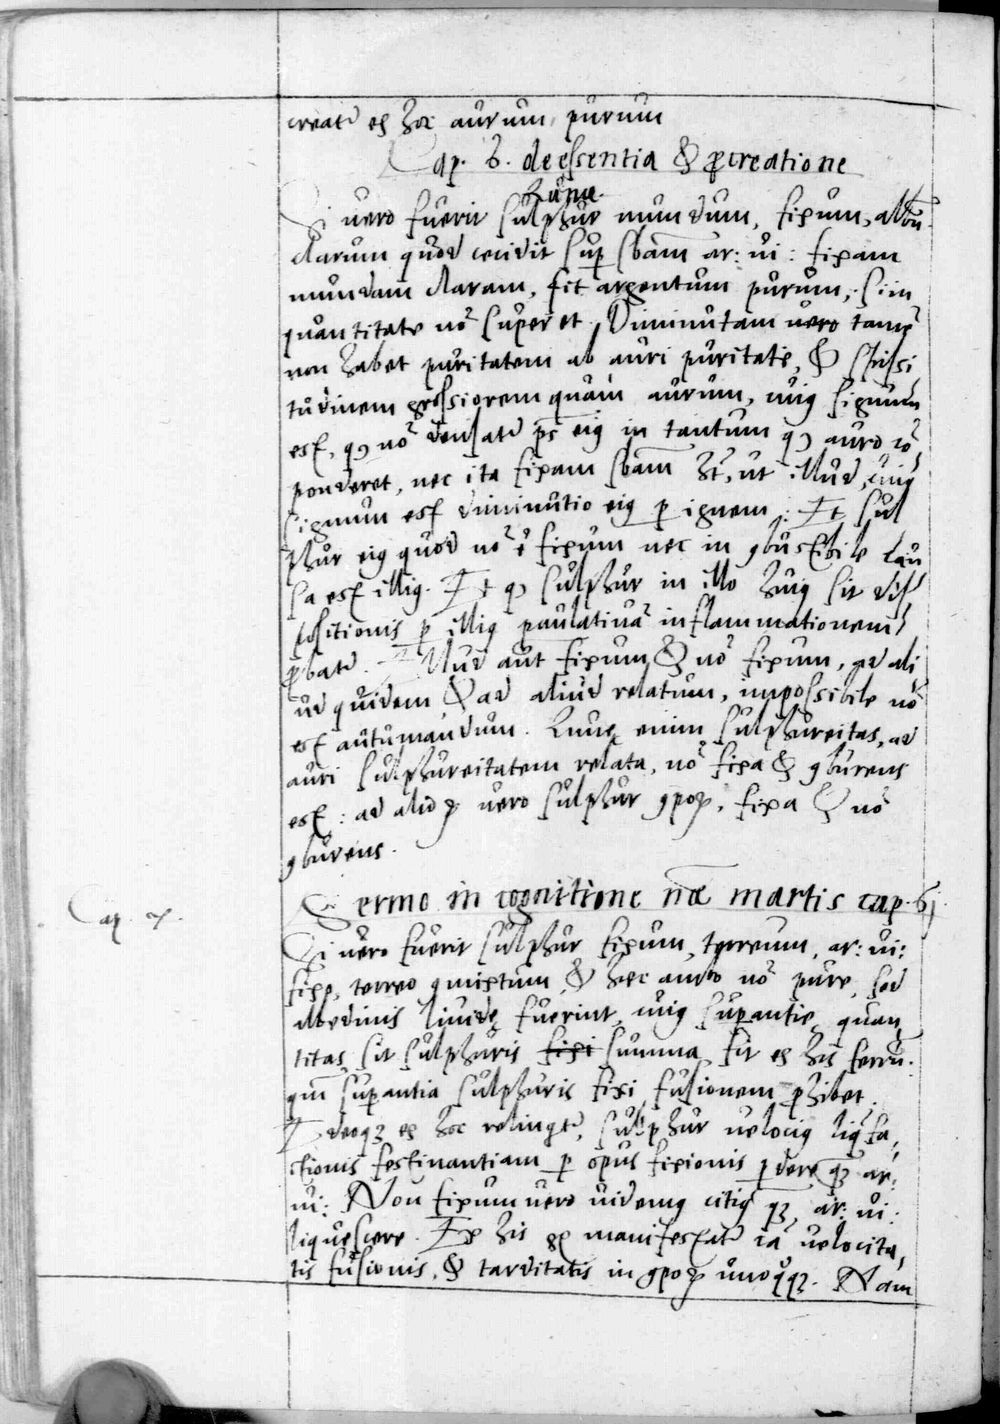 creatr̃ ex hoc aurum purum
Cap. 6. de essentia & ꝓcreatione
Lunæ.
Si vero fuerit sulphur mundum, fixum, albũ
clarum quod ceridit sup̱ sbãm ar: vi: fixam
mundam claram, fit argentum purum, si in
quantitate nõ superet. Diminutam vero tamẽ
non habet puritatem ab auri puritate, & spissi
tudinem grossiorem quam aurum, cuiꝰ signum
est, qꝫ nõ densatr̃ ps̃ eiꝰ in tantum qꝫ auro cõ
ponderet, nec ita fixam sbãm ht̃, ut illud, cuiꝰ
signum est diminutio eiꝰ ꝑ ignem: Et sul
phur eiꝰ quod nõ ẽ fixum nec in ꝯbustibile cau
sa est illiꝰ. Et qꝫ sulphur in illo huiꝰ sit dis
positionis ꝑ illiꝰ paulativã inflammationem
ꝓbatr̃. Illud aut fixum & nõ fixum, ad ali
ud quidem & ad aliud relatum, impossibile nõ
est autumandum. Lunę enim sulphureitas, ad
auri sulphureitatem relata, nõ fixa & ꝯburens
est: ad alioꝝ vero sulphur ꝯpoꝝ, fixa & nõ
ꝯburens.
Sermo in cognitione nãe martis cap. 6j.
Cap. x.
Si vero fuerit sulphur fixum, terreum, ar: vi:
fixo, terreo ꝯmixtum, & hęc ambo nõ pure, sed
albedinis lividę fuerint, cuiꝰ sup̱antię quan
titas sit sulphuris fixi summa, fit ex his ferrũ.
qm̃ sup̱antia sulphuris fixi fusionem ꝓhibet.
Ideoqꝫ ex hoc relinqtr̃, sulphur velociꝰ liq̃fa
ctionis festinantiam ꝑ opus fixionis ꝑdere qꝫ ar:
vi: Non fixum vero videmꝰ citiꝰ qꝫ, ar: vi:
liquescere. Ex his gͦ manifestatr̃ cã velocita
tis fusionis, & tarditatis in ꝯpoꝝ unoqͦqꝫ. Nam